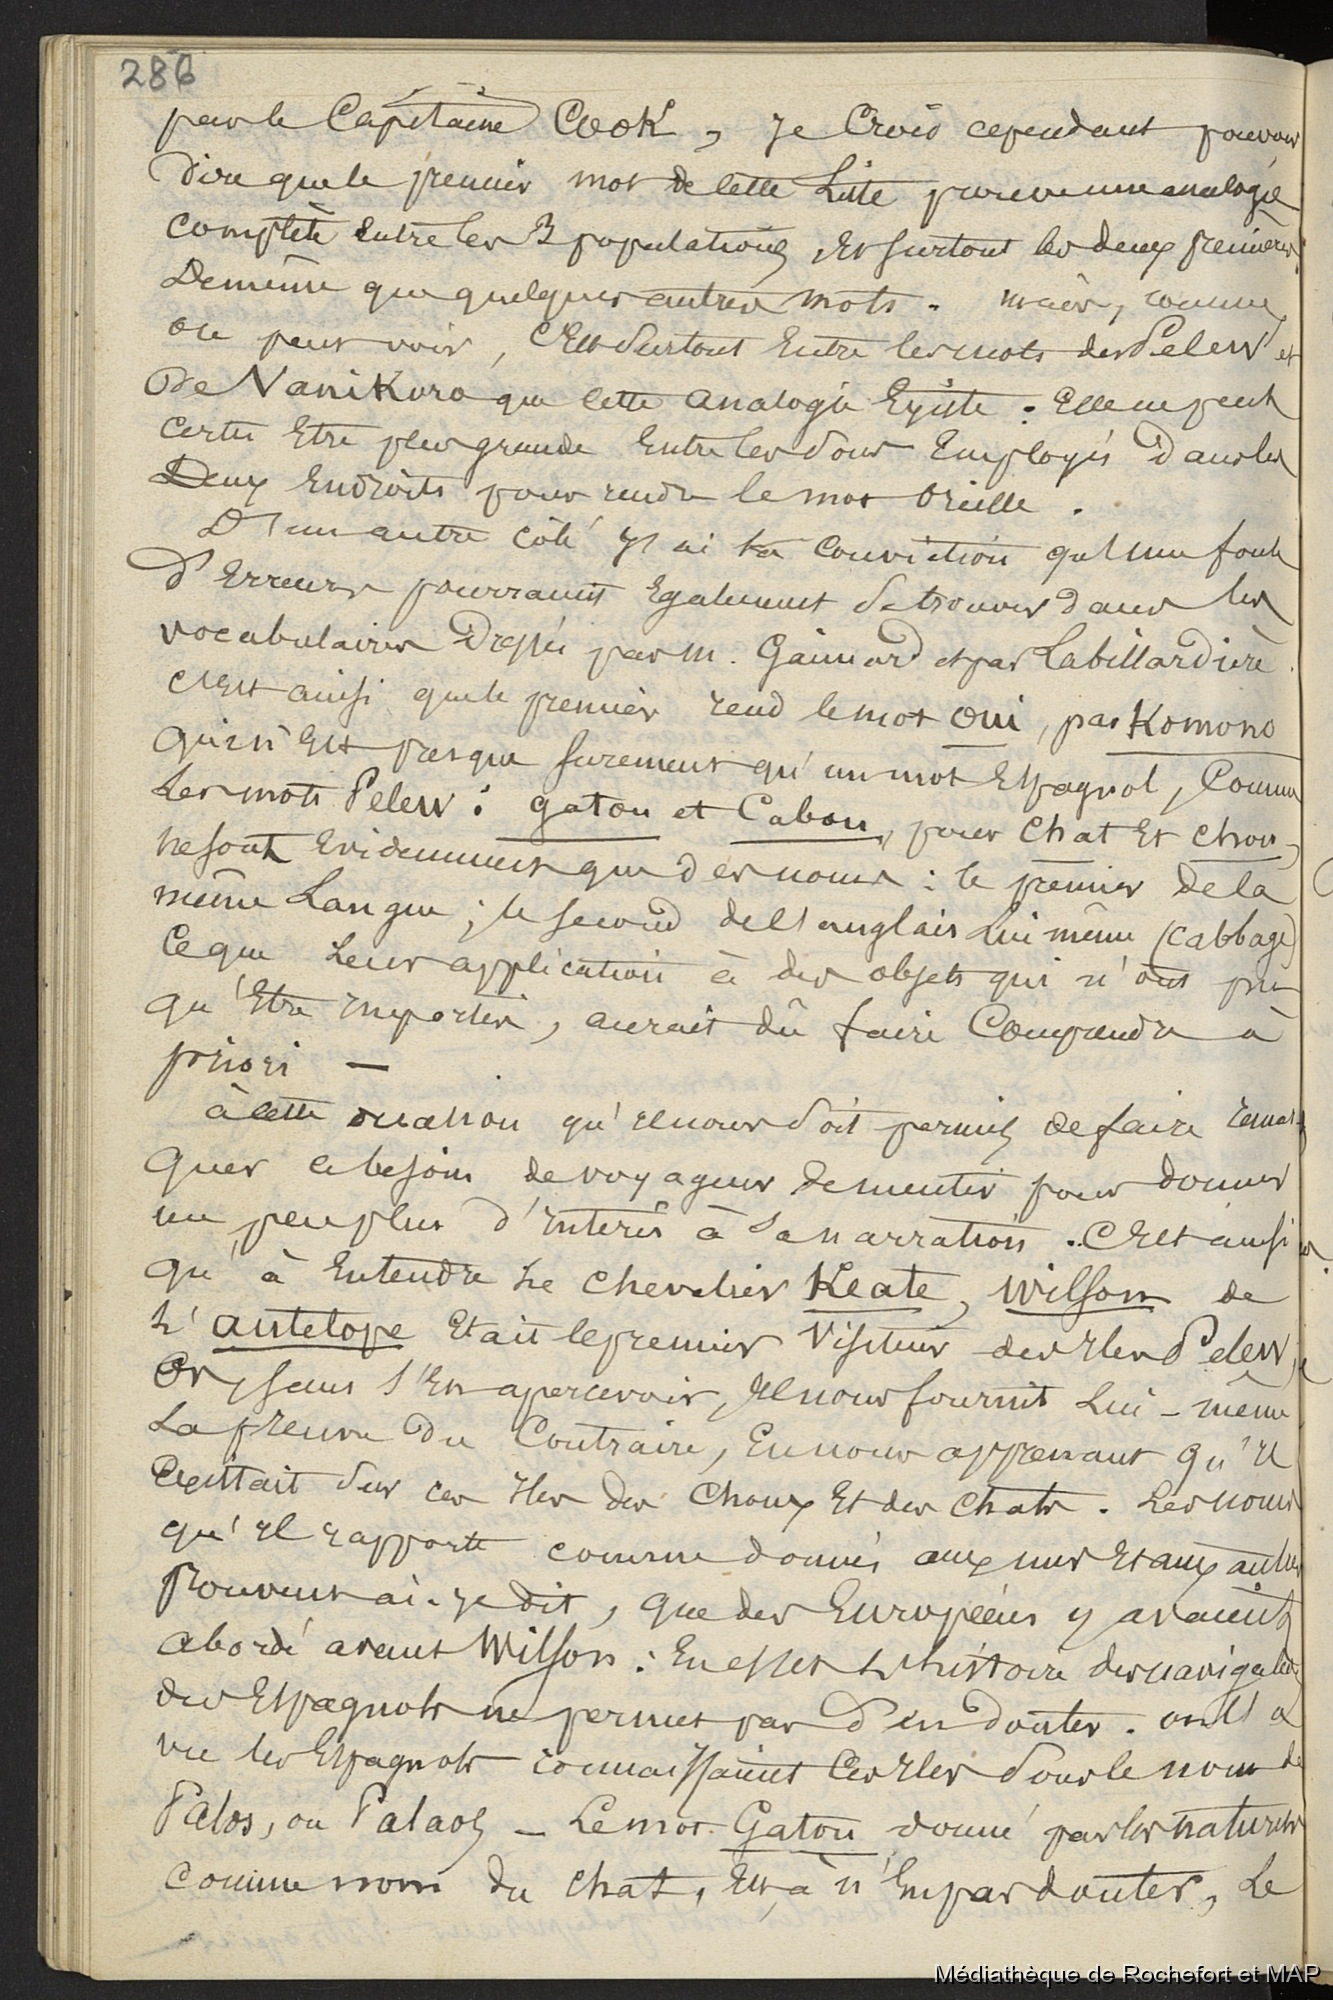 286
par le Capitaine Cook, je crois cependant pouvoir
dire que le premier mot de cette Liste prouve une analogie
complète entre les 3 populations, et surtout les deux premières
De même que quelques autres mots. mais, comme
on peut voir, C'est surtout entre les mots des Pelew et
de Vanikoro que cette analogie Existe. Elle ne peut
certes Etre plus grande Entre les sons Employés dans les
Deux Endroits pour rendre le mot Oreille.
D'un autre côté j'ai la conviction qu'une foule
d'Erreurs pourraient Egalement se trouver dans les
vocabulaires Dressés par M. Gaimard et par Labillardière.
C'est ainsi que le premier rend le mot oui, par Komono
qui n'Est presque surement qu'un mot Espagnol, Comme
Les mots Pelew: gatou et Cabou, pour Chat Et Chou,
ne sont Evidemment que des noms: le premier de la
même Langue; le second de l'anglais Lui même (cabbage)
Ce que Leur application à des objets qui n'ont pu
qu'Etre Importés, aurait dû faire Comprendre à
priori —
à cette occasion qu'il nous soit permis de faire remar
quer le besoin de voyageur de mentir pour donner
un peu plus d'intérêt à sa narration. C'est ainsi
qu'à Entendre Le Chevalier Keate, Wilson de
L'antelope Etait le premier Visiteur des Iles Pelew,
Or, sans s'En apercevoir, Il nous fournit Lui-même
La preuve du Contraire, En nous apprenant qu'il
Existait sur ces Iles des Choux Et des Chats. Les noms
qu'il rapporte comme donnés aux uns Et aux autres
Prouvent ai-je dit, que des Européens y avaient
abordé avant Wilson: En effet L'histoire des navigateurs
des Espagnols ne permet pas d'en douter. on l'a
vu les Espagnols connaissaient Ces Iles sous le nom de
Palos, ou Palaos — Le mot Gatou donné par les naturels
comme nom du chat, Est, à n'En pas douter, Le
Médiathèque de Rochefort et MAP